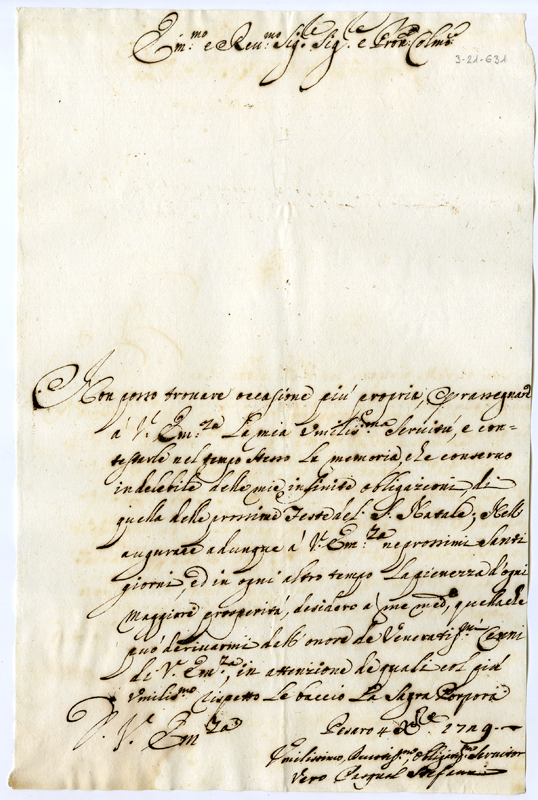 Em.mo e Reu.mo Sig.re Sig.re e Pron. Colmo
3-21-631
Non posso trouare occasione più propria, p rassegnare
á V. Em.za La mia Vmiliss.ma Seruitu, e con-
testarle nel tempo stesso La memoria che conseruo
indelebile delle mie infinite obligazioni di
quella delle prossime Feste del S. Natale; Nell
augurare adunque á V. Em.za ne prossimi Santi
giorni, ed in ogni altro tempo La pienezza d'ogni
Maggiore prosperitá, desidero a me med.o quella che
può deriuarmi dell'onore de Veneratiss.mi Cenni
di V. Em.za, in attenzione de quali col già
Vmiliss.mo rispetto Le baccio La Sagra Porpora
D. V. Em.za
Pesaro 4 Xbre 1729.
Vmilissimo, Deuotiss.mo, Obligatiss.mo Seruitor
Vero Pasqual Stefani